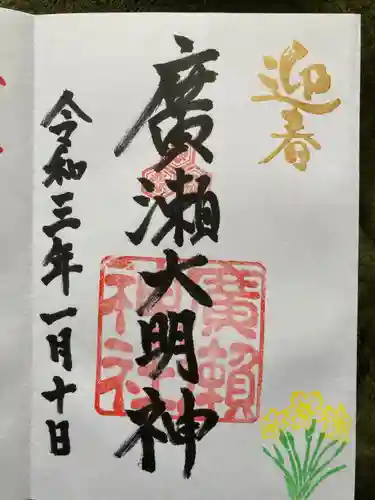 迎春
廣瀬大明神
廣瀬神社
令和三年一月十日